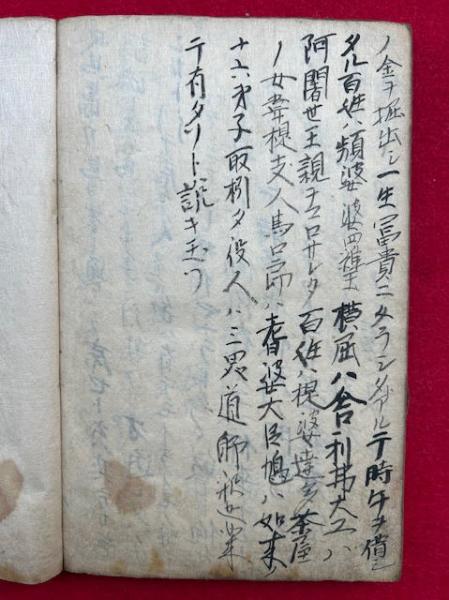 ノ金ヲ掘出シ一生冨貴ニクランタル于時牛ヲ借シ
タル百姓ハ頻婆娑羅王横屈ハ舎利弗大工ハ
阿闍世王親ヲコロサレタ百姓ハ提婆達多茶屋
ノ女韋提夫人馬口郎ハ耆婆大臣鳩ハ如来ノ
十六弟子取捌タ役人ハ三界道師釈迦
テ有タリト説キ玉フ